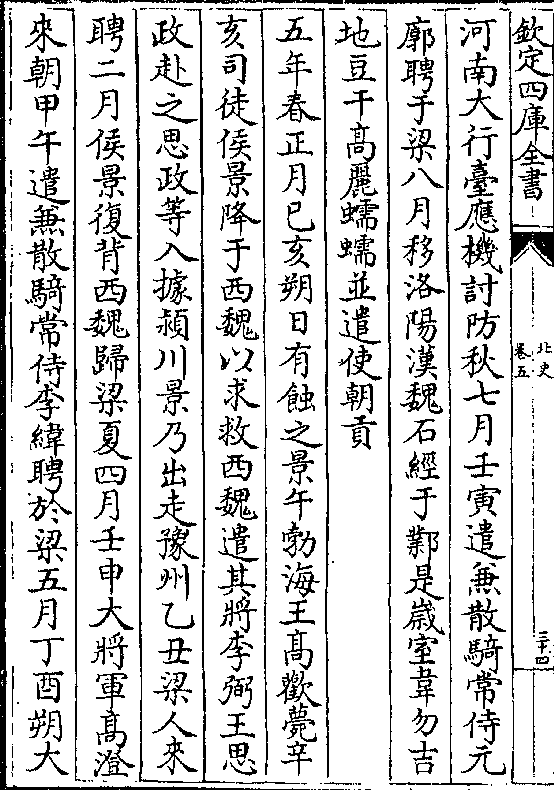 欽定四庫全書
北史
卷五
三十四
河南大行臺應機討防秋七月壬寅遣兼散騎常侍元
廓聘于梁八月移洛陽漢魏石經于鄴是歲室韋勿吉
地豆干高麗蠕蠕並遣使朝貢
五年春正月己亥朔日有蝕之景午勃海王高歡薨辛
亥司徒侯景降于西魏以求救西魏遣其將李弼王思
政赴之思政等入據潁川景乃出走豫州乙丑梁人來
聘二月侯景復背西魏歸梁夏四月壬申大將軍高澄
來朝甲午遣兼散騎常侍李緯聘於梁五月丁酉朔大